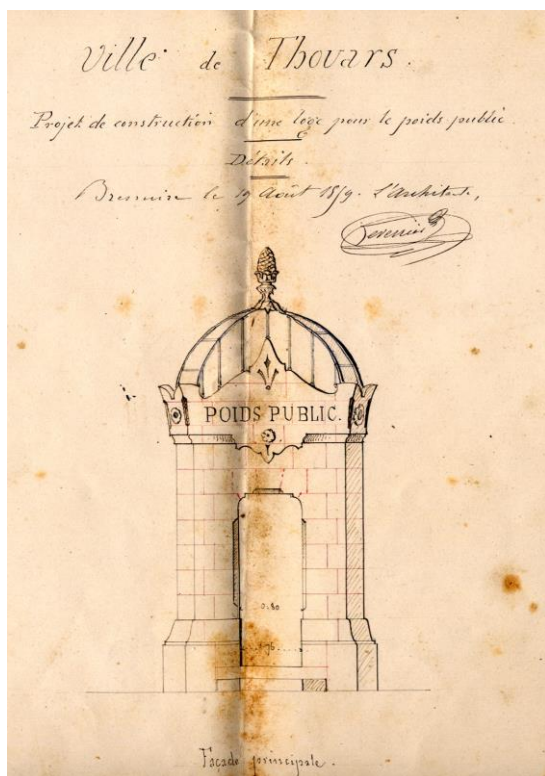 Ville de Thouars.
Projet de construction d'une loge pour le poids public.
Détails.
Bressuire le 19 Août 1859. L'Architecte,
POIDS PUBLIC.
0.80
Façade principale.